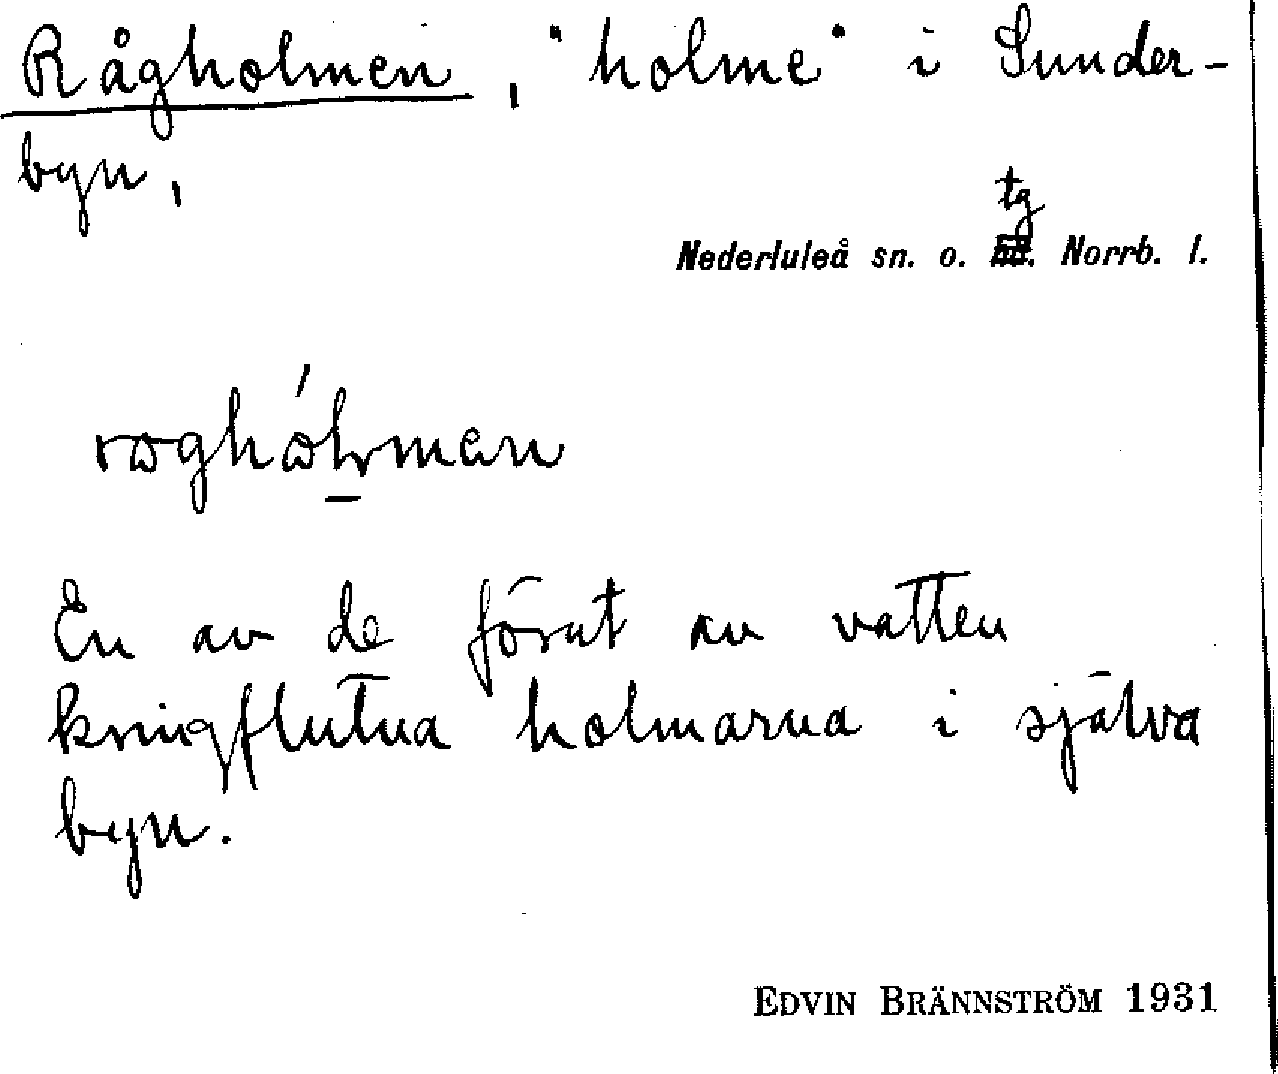 Rågholmen, "holme" i Sunder-
byn,
tg
Nederluleå sn. o. Norrb. l.
En av de förut av vatten
kringflutna holmarna i själva
byn.
EDVIN BRÄNNSTRÖM 1931